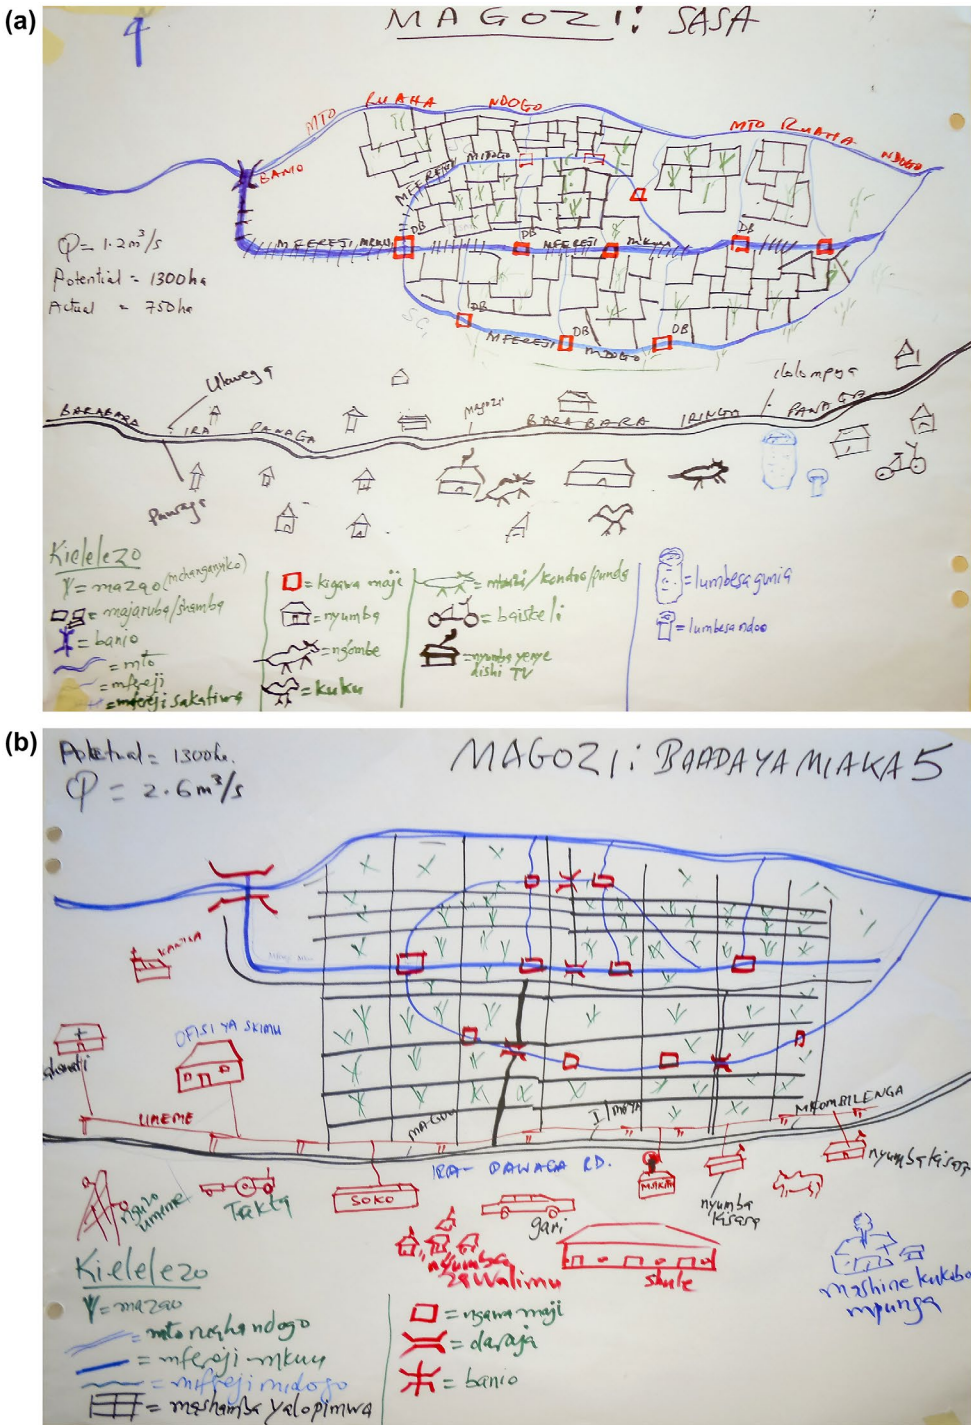 (a)
4
MAGOZI: SASA
MTO RUAHA NDOGO
MTO RUAHA NDOGO
BANIO
MFEREJI MDOGO
Q = 1.2 m³/s
Potential = 1300ha
Actual = 750ha
MFEREJI MKUU
DB
DB
MFEREJI
mkuu
DB
DB
MFEREJI
DB
MDOGO
DB
Ukwega
Magozi
Ilolompya
BARABARA IRA PAWAGA
BARABARA IRINGA PAWAGA
Pawaga
Kielelezo
= mazao (mchanganyiko)
= majaruba/shamba
= banio
= mto
= mfereji
= mfereji sakafiwa
= kigawa maji
= nyumba
= ng'ombe
= kuku
= mbuzi/kondoo/punda
= baiskeli
= nyumba yenye
dishi TV
= lumbesa gunia
= lumbesa ndoo
(b)
Potential = 1300ha.
Q = 2.6 m³/s
MAGOZI: BAADA YA MIAKA 5
KANISA
OFISI YA SKIMU
zahanati
UMEME
MAGOZI
MKOMBILENGA
IRA- PAWAGA RD.
nguzo
umeme
Takta
SOKO
gari
nyumba
kisasa
nyumba kisasa
nyumba
za walimu
shule
mashine kukoboa
mpunga
Kielelezo
= mazao
= mto ruaha ndogo
= mfereji mkuu
= mfereji mdogo
= mashamba yaliopimwa
= ngawa maji
= daraja
= banio